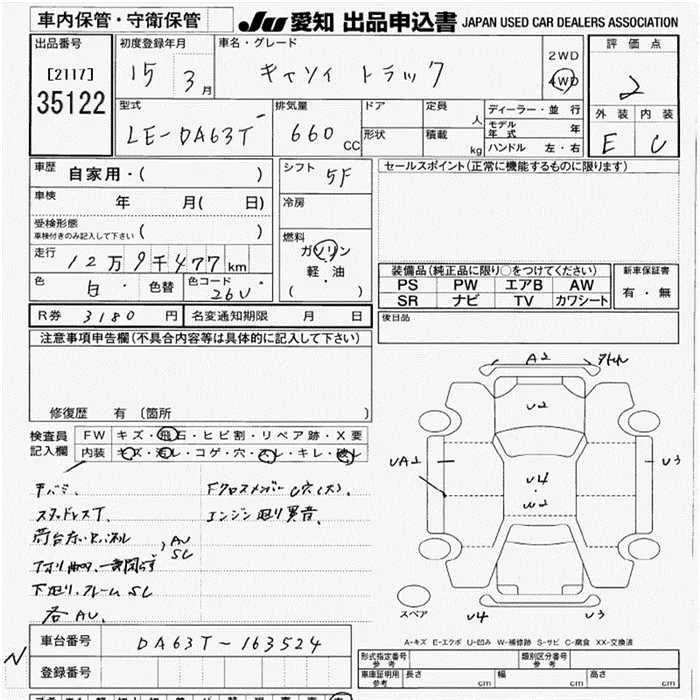 車内保管・守衛保管
JU 愛知 出品申込書 JAPAN USED CAR DEALERS ASSOCIATION
出品番号
[2117]
35122
初度登録年月
15 3月
車名・グレード
キャリイ トラック
2WD
4WD
評価点
2
外装 内装
E C
型式
LE-DA63T
排気量
660 CC
ドア
形状
定員 人
積載 kg
ディーラー・並行
モデル年式 年
ハンドル 左・右
車歴
自家用・( )
車検
年 月( 日)
受検形態
車検付きのみ記入して下さい ( )
走行
12万9千477km
色
白・ 色替 色コード
26U
シフト
5F
冷房
燃料
ガソリン
軽・油
( ・ )
セールスポイント(正常に機能するものに限ります)
装備品(純正品に限り○をつけてください)
PS PW エアB AW
SR ナビ TV カワシート
新車保証書
有・無
R券 3180円 名変通知期限 月 日
後日品
注意事項申告欄(不具合内容等は具体的に記入して下さい)
修復歴 有 〔箇所 〕
検査員記入欄
FW キズ・飛石・ヒビ割・リペア跡・X要
内装 キズ・汚レ・コゲ・穴・スレ・キレ・破レ
スタッドレスT.
AU
SC
下廻り、フレーム SC
各AU.
Fクロスメンバー C穴(大).
エンジン廻り異音.
A2
U2
UA2
U4
W2
U3
U4
U3
スペア
A-キズ E-エクボ U-凹み W-補修跡 S-サビ C-腐食 XX-交換済
N
車台番号 DA63T-163524
登録番号
形式指定番号 参考
類別区分番号 参考
車庫証明用 参考 長さ cm 幅 cm 高さ cm